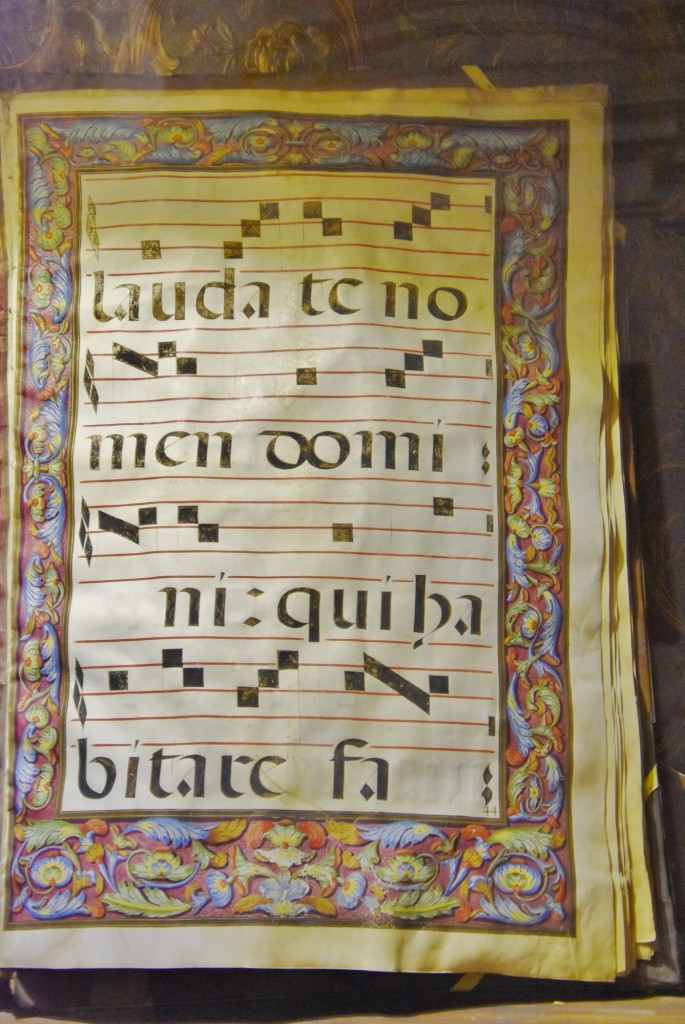 lauda te no
men domi :
ni : qui ha
bitare fa :
44